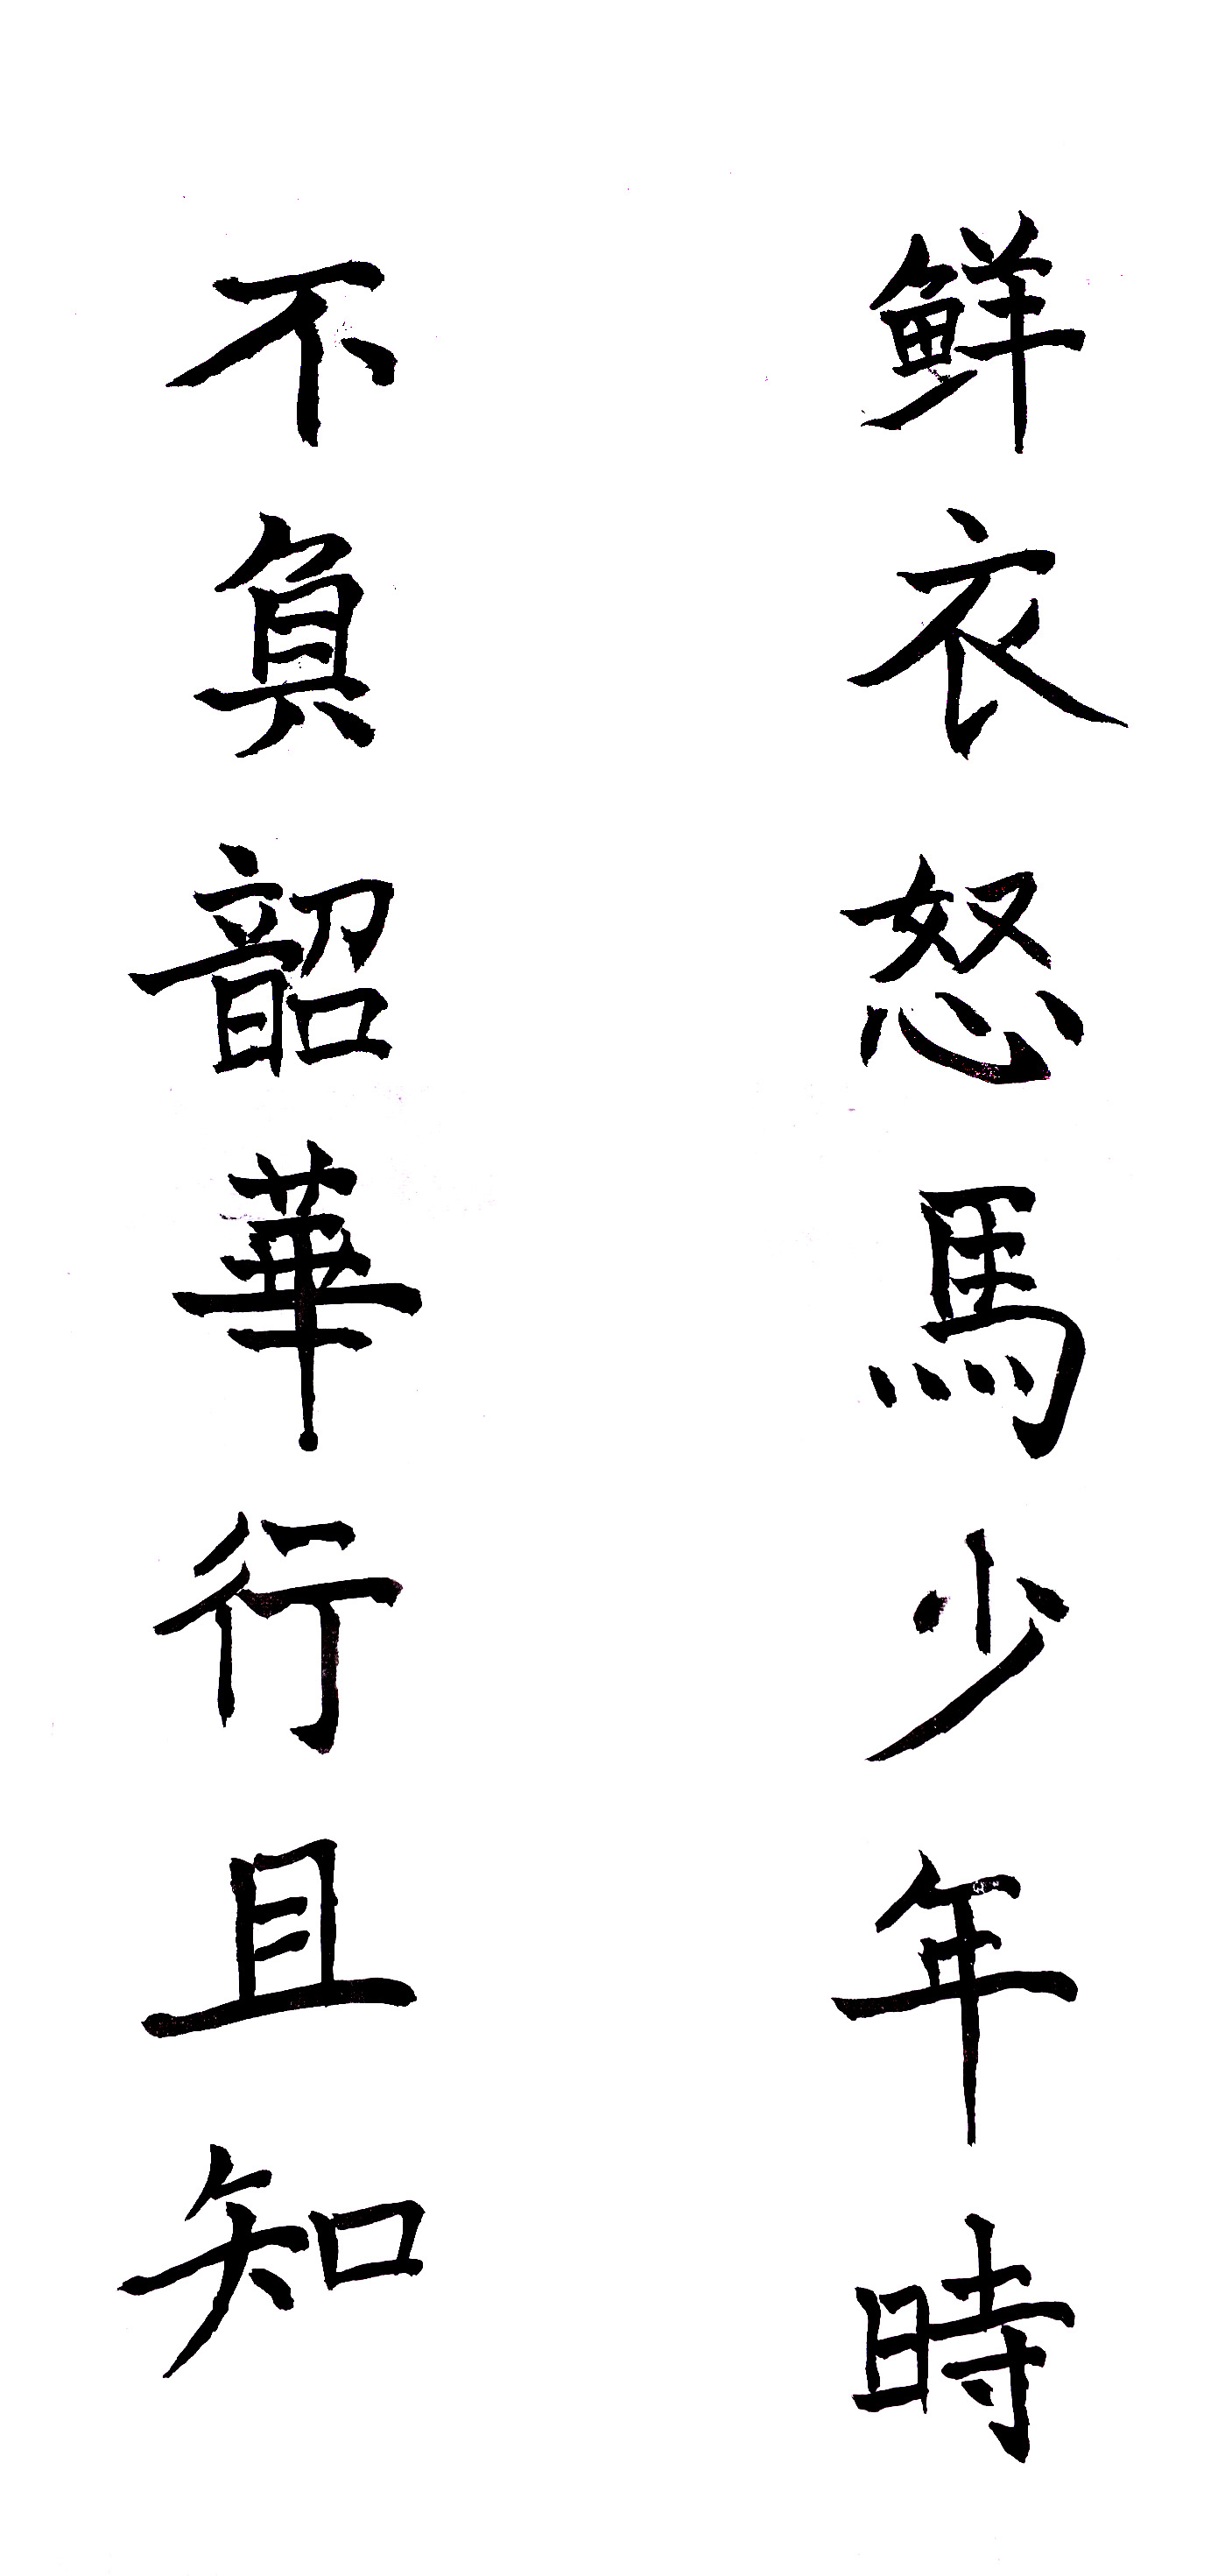 鲜衣怒馬少年時
不負韶華行且知